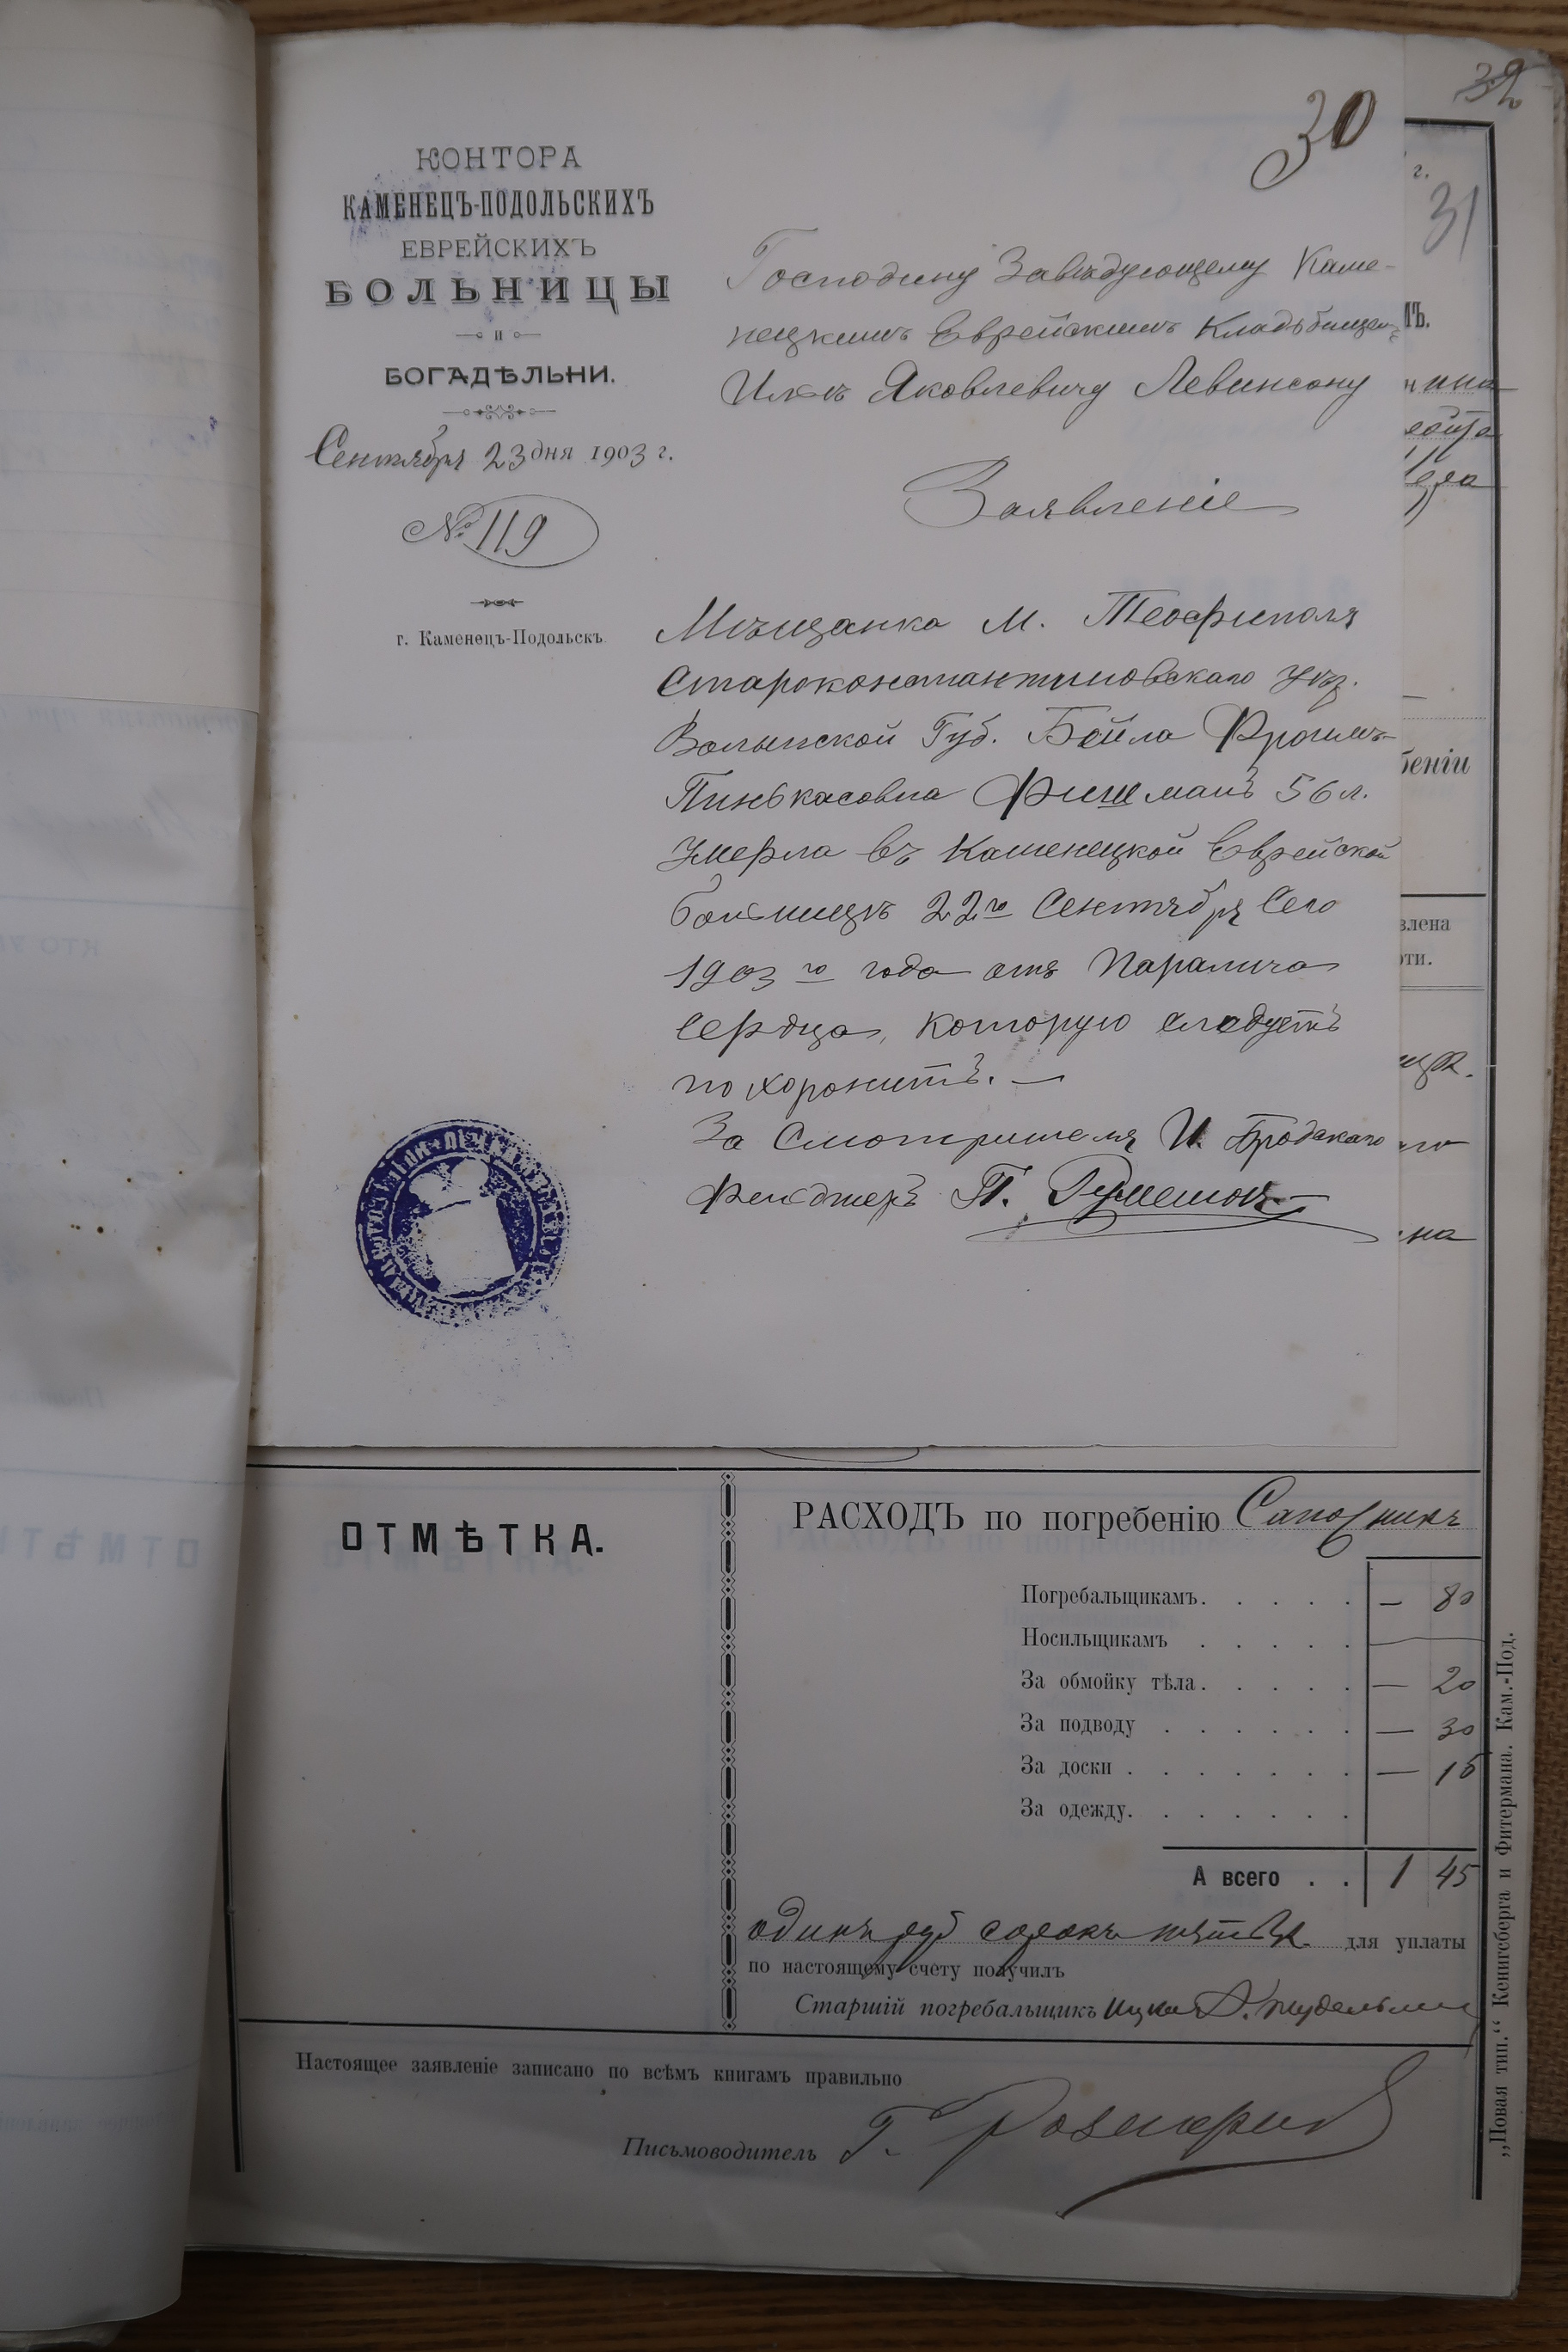 32
30
31
КОНТОРА
КАМЕНЕЦЪ-ПОДОЛЬСКИХЪ
ЕВРЕЙСКИХЪ
БОЛЬНИЦЫ
и
БОГАДѢЛЬНИ.
Сентября 23 дня 1903 г.
№ 119
г. Каменецъ-Подольскъ
Господину Завѣдующему Каме-
нецкимъ Еврейскимъ Кладбищемъ
Яковлевичу Левинсону
Заявленіе
Мѣщанка м. Теофиполя
Староконстантиновскаго уѣз.
Волынской Губ. Бейла Фроимъ-
Пинькасовна Фишманъ 56 л.
умерла въ Каменецкой Еврейской
больницѣ 22го Сентября Сего
1903го года отъ Паралича
Сердца, которую следуетъ
похоронитъ. —
За Смотрителя И. Бродскаго
Фельдшеръ П.
г.
беніи
влена
рти.
на
ОТМѢТКА.
РАСХОДЪ по погребенію Сапожникъ
Погребальщикамъ. — 80
Носильщикамъ
За обмойку тѣла. — 20
За подводу — 30
За доски — 15
За одежду.
А всего 1 45
одинъ руб сорокъ пять к для уплаты
по настоящему счету получилъ
Старшій погребальщикъ Ицко
Настоящее заявленіе записано по всѣмъ книгамъ правильно
Письмоводитель Г.
„Новая тип.“ Кенигсберга и Фитермана. Кам.-Под.